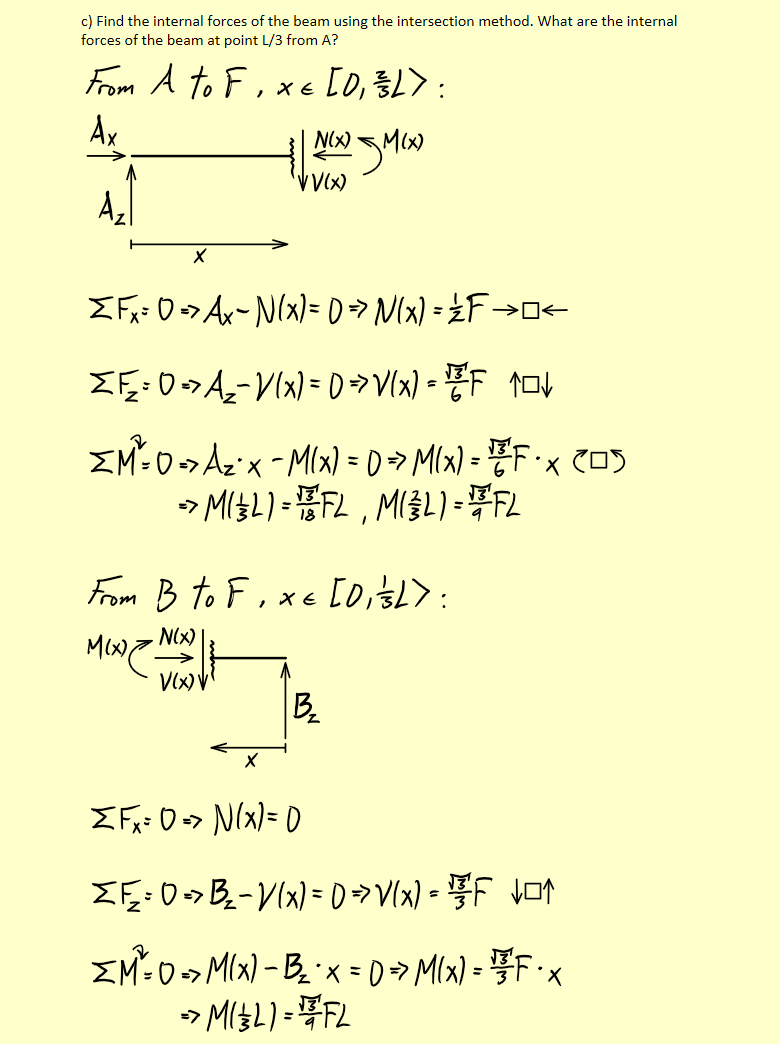 c) Find the internal forces of the beam using the intersection method. What are the internal
forces of the beam at point L/3 from A?
From A to F, x ∈ [0, 2/3 L> :
Ax
N(x) M(x)
V(x)
Az
x
ΣFx = 0 => Ax - N(x) = 0 => N(x) = 1/2 F →□←
ΣFz = 0 => Az - V(x) = 0 => V(x) = √3/6 F ↑□↓
ΣM↷ = 0 => Az · x - M(x) = 0 => M(x) = √3/6 F · x ↷□↶
=> M(1/3 L) = √3/18 FL , M(2/3 L) = √3/9 FL
From B to F, x ∈ [0, 1/3 L> :
M(x) N(x)
V(x)
Bz
x
ΣFx = 0 => N(x) = 0
ΣFz = 0 => Bz - V(x) = 0 => V(x) = √3/3 F ↓□↑
ΣM↷ = 0 => M(x) - Bz · x = 0 => M(x) = √3/3 F · x
=> M(1/3 L) = √3/9 FL